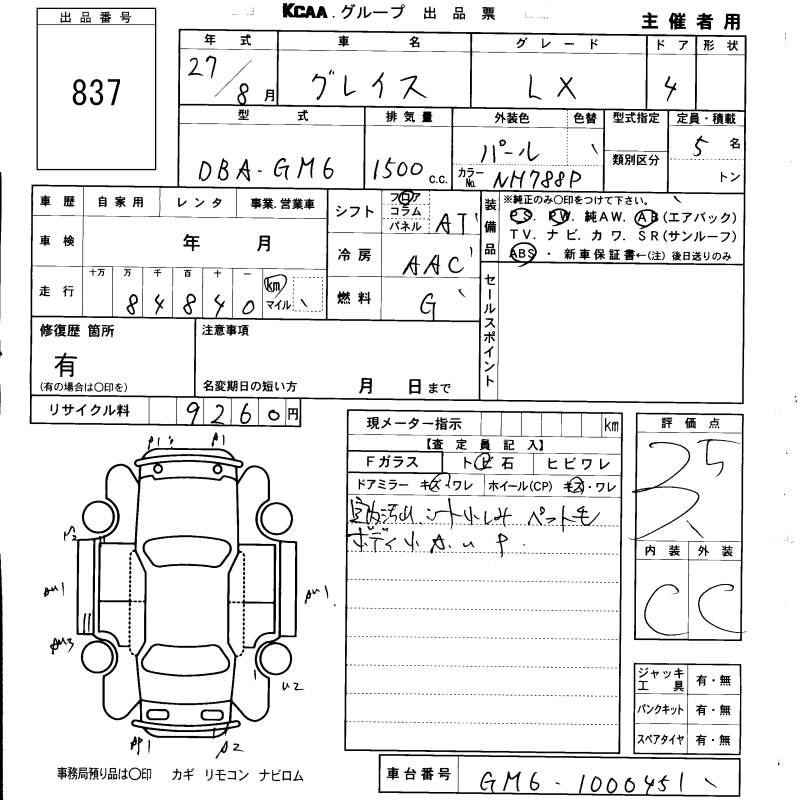 KCAA.グループ 出品票
主催者用
出品番号
837
年式 車名 グレード ドア 形状
27/8月 グレイス LX 4
型式 排気量 外装色 色替 型式指定 定員・積載
DBA-GM6 1500c.c. パール 5名
カラーNo. NH788P 類別区分 トン
車歴 自家用 レンタ 事業.営業車
シフト フロア コラム パネル AT
装備品 ※純正のみ○印をつけて下さい。
PS. PW. 純AW. AB(エアバック)
TV. ナビ. カワ. SR(サンルーフ)
ABS ・ 新車保証書←(注)後日送りのみ
車検 年 月
冷房 AAC
走行 十万 万 千 百 十 一 km マイル
84840
燃料 G
セールスポイント
修復歴 箇所
有
(有の場合は○印を)
注意事項
名変期日の短い方 月 日まで
リサイクル料 9260円
現メーター指示 km
【査定員記入】
Fガラス トビ石 ヒビワレ
ドアミラー キズ・ワレ ホイール(CP) キズ・ワレ
シート小しみ ペット毛
ボディ小 A. u P.
評価点
内装 外装
C C
A1
AU1
AU1
U2
A2
ジャッキ工具 有・無
パンクキット 有・無
スペアタイヤ 有・無
事務局預り品は○印 カギ リモコン ナビロム
車台番号 GM6-1000451